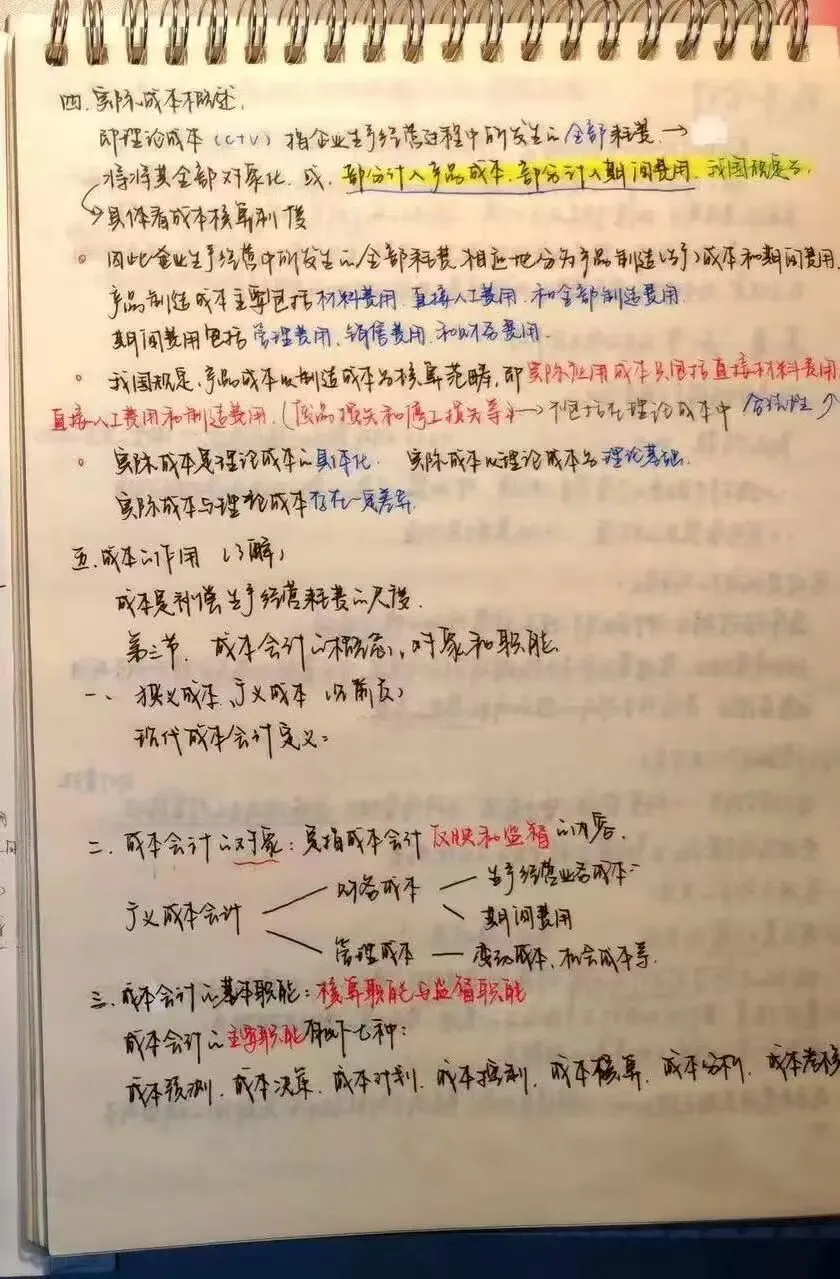 四.实际成本概述.
即理论成本(C+V)指企业生产经营过程中所发生的全部耗费.→
将其全部对象化.或.部分计入产品成本.部分计入期间费用.我国规定与.
↳具体看成本核算制度
◦ 因此企业生产经营中所发生的全部耗费.相应地分为产品制造(生产)成本和期间费用.
产品制造成本主要包括材料费用.直接人工费用.和全部制造费用.
期间费用包括管理费用.销售费用.和财务费用.
◦ 我国规定.产品成本以制造成本为核算范畴,即实际应用成本只包括直接材料费用,
直接人工费用和制造费用.(废品损失和停工损失等)→不包括在理论成本中 合法性↗
◦ 实际成本是理论成本的具体化. 实际成本以理论成本为理论基础.
实际成本与理论成本存在一定差异.
五.成本的作用(了解)
成本是补偿生产经营耗费的尺度.
第三节. 成本会计的概念,对象和职能
一、狭义成本、广义成本(见前页)
现代成本会计定义:
二.成本会计的对象:是指成本会计反映和监督的内容.
广义成本会计 财务成本 — 生产经营业务成本
期间费用
管理成本 — 变动成本、机会成本等.
三.成本会计的基本职能:核算职能与监督职能
成本会计的主要职能有以下七种:
成本预测.成本决策.成本计划.成本控制.成本核算.成本分析.成本考核